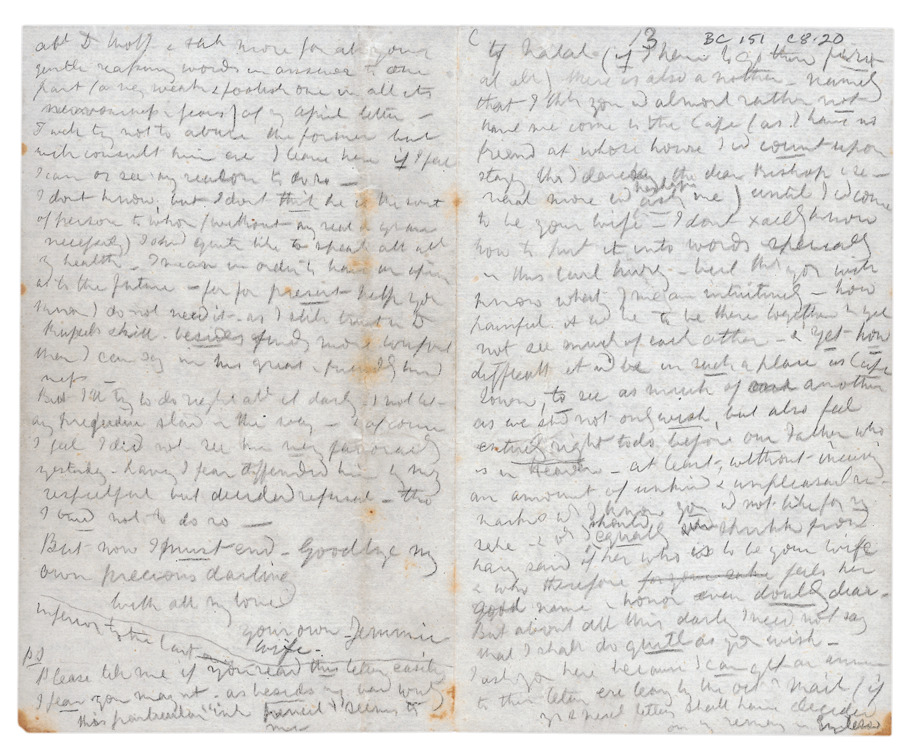 abt D Wolff & still more for all your
gentle reassuring words in answer to one
part (a very weak & foolish one in all its
nervousness & fears) of my April letter –
I will try not to abuse the former but
will consult him ere I leave here if I feel
I can or see any reason to do so –
I don't know, but I don't think he is the sort
of person to whom (without any real
necessity) I shd quite like to speak abt all
my health – I mean in order to have an opinion
as to the future – for for present help you
know) I do not need it – as I still trust in D
skill besides finding more comfort
than I can say in his great & friendly kind
ness –
But I'll try to do right abt it darling & not let
any prejudice stand in the way – & of course
I feel I did not see him very favorably
yesterday – having I fear offended him by my
respectful but decided refusal – tho
I tried not to do so –
But now I must end – Goodbye my
own precious darling
With all my love
your own Jemmie
wife –
inferior to the last
PS
Please tell me if you read this letter easily
I fear you may not – as besides my bad writing
this particular "ink pencil" seems to
me
C 13 BC 151 C8.20
to Natal (if I have to go there first
at all) there is also another – namely
that I think you wd almost rather not
have me come to the Cape (as I have no
friend at whose house I wd count upon
staying tho' I daresay the dear Bishop &
several more wd ask me) until I cd come
to be your wife – I dont xactly know
how to put it into words specially
in this hurry – but tht you will
know what I mean intuitively – how
painful it wd be to be there together & yet
not see much of each other – & yet how
difficult it wd be in such a place as Cape
Town, to see as much of one another
as we shd not only wish, but also feel
entirely right to do before our Father who
is in Heaven – at least, without incurring
an amount of unkind & unpleasant re-
marks wh I know you wd not like for my
sake – & wh I should equally shrink from
having said of her who is to be your wife
& who therefore for your sake feels her
good name & honor even doubly dear –
But about all this darling I need not say
that I shall do quite as you wish –
I ask you here because I can get an answer
to this letter ere leaving by the Oct r Mail (if
yr next letter shall have decided
on my remaining in England